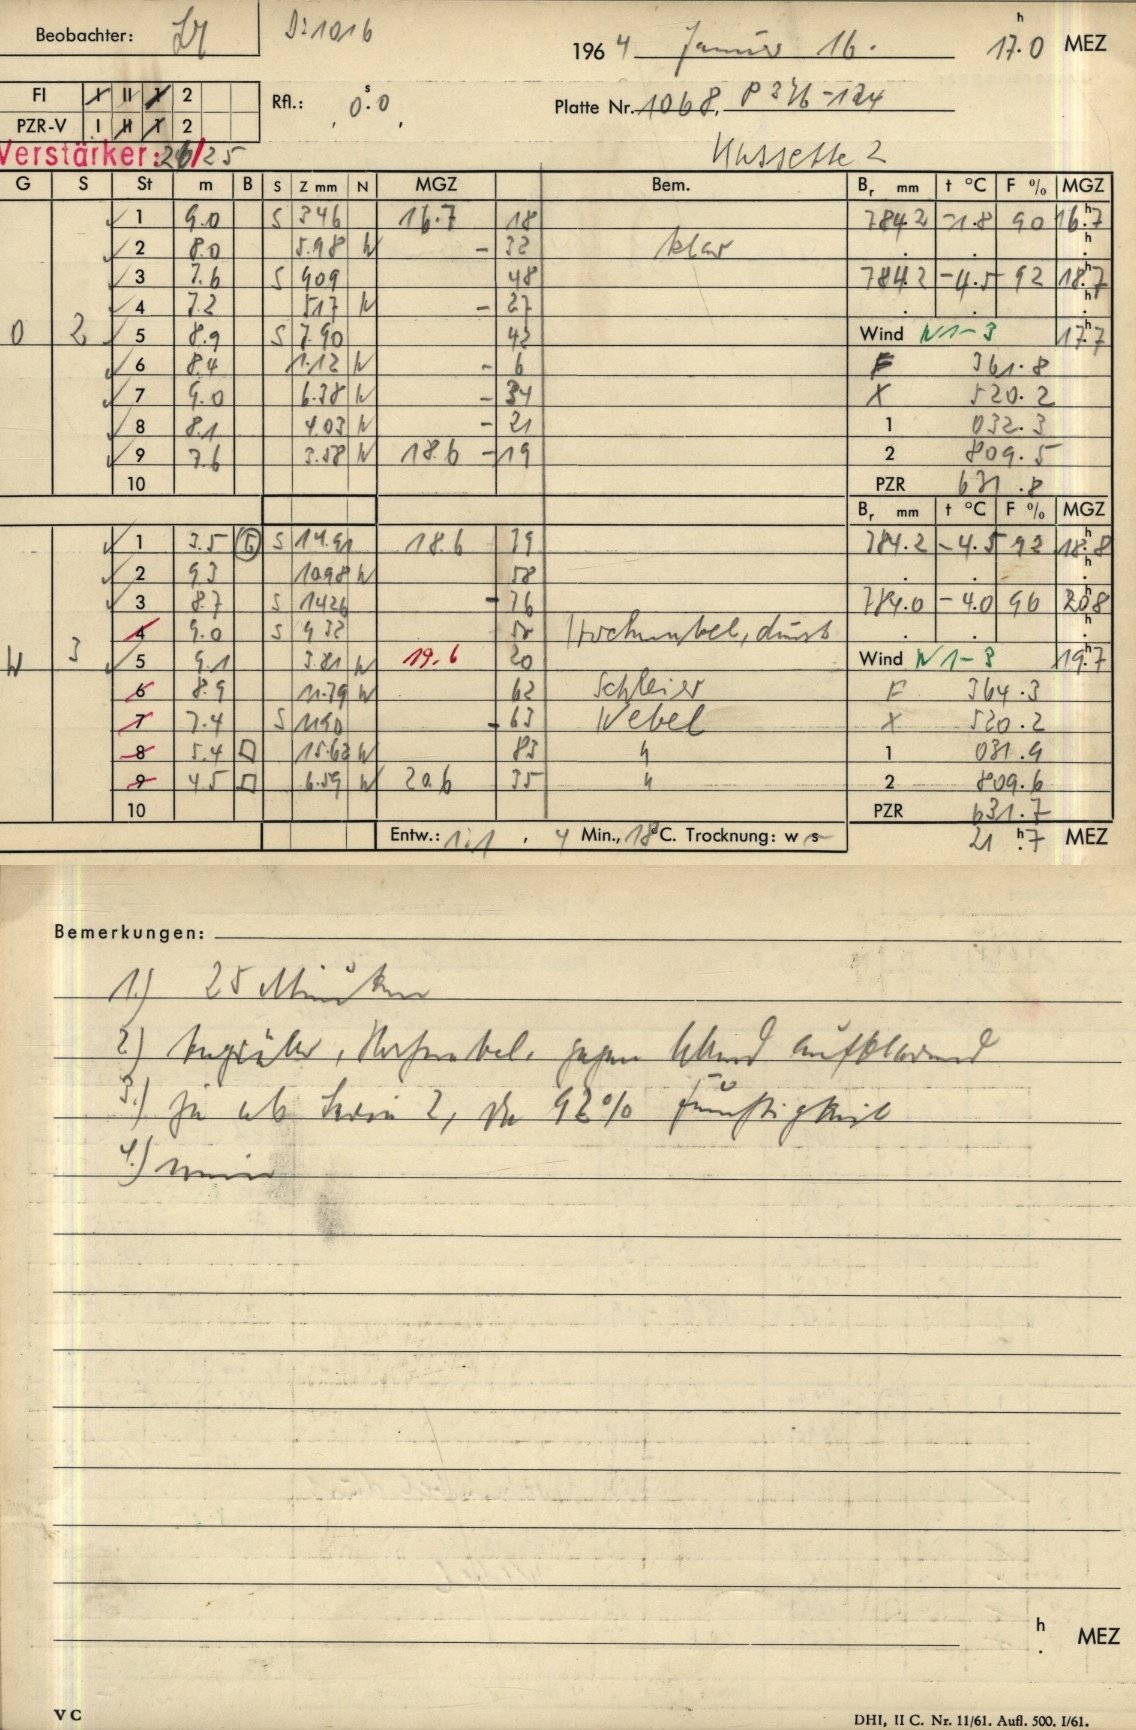 Beobachter:
Di 1016
1964 Januar 16. 17.0 h MEZ
FI I II 1 2
PZR-V I II 1 2
Rfl.: 0.0 s
Platte Nr. 1068,
Verstärker: /25
Kassette 2
G S St m B S Z mm N MGZ Bem. Br mm t °C F % MGZ
1 9.0 S 346 16.7 18 784.2 -1.8 90 16.7 h
2 8.0 5.98 W - 32 klar
3 7.6 S 909 48 784.2 -4.5 92 18.7 h
4 7.2 517 W - 27
O 2 5 8.9 S 7.90 42 Wind N 1-3 17.7 h
6 8.4 1.12 W - 6 F 361.8
7 9.0 6.38 W - 34 X 520.2
8 8.1 4.03 W - 21 1 032.3
9 7.6 3.58 W 18.6 - 19 2 809.5
10 PZR 631.8
Br mm t °C F % MGZ
1 3.5 S 14.91 18.6 79 784.2 -4.5 92 18.8 h
2 9.3 10.98 W 58
3 8.7 S 1426 - 76 784.0 -4.0 96 20.8 h
4 9.0 S 932 50 Hochnebel, dunst
W 3 5 9.1 3.81 W 19.6 20 Wind N 1-3 19.7 h
6 8.9 11.79 W 62 Schleier F 364.3
7 7.4 S 1190 - 63 Nebel X 520.2
8 5.4 15.62 W 83 " 1 031.9
9 4.5 6.59 W 20.6 35 " 2 809.6
10 PZR 631.7
Entw.: 1:1, 4 Min., 18 °C. Trocknung: w s 21.7 h MEZ
Bemerkungen:
1.) 25 Minuten
2.) Hochnebel, gegen Abend aufklarend
3.) ja ab Serie 2, da 92% Feuchtigkeit
4.) nein
h MEZ
V C
DHI, II C. Nr. 11/61. Aufl. 500. I/61.